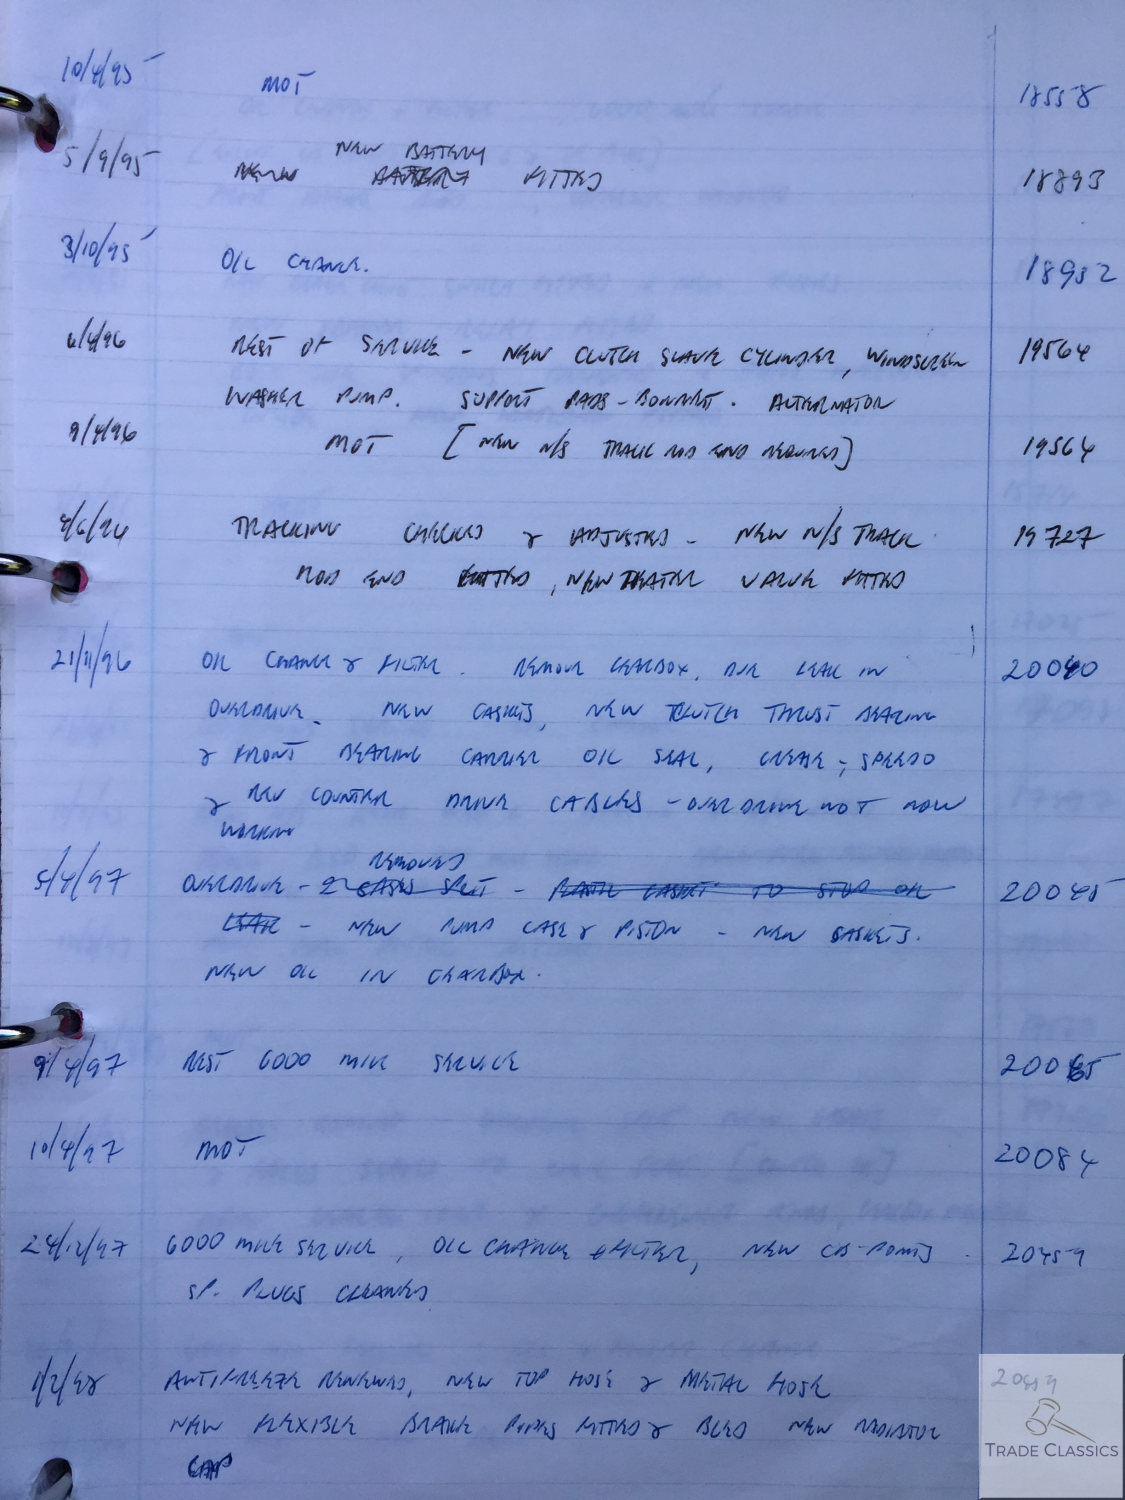 10/4/95 MOT 18558
NEW BATTERY
5/9/95 NEW BATTERY FITTED 18893
3/10/95 OIL CHANGE. 18952
6/4/96 REST OF SERVICE - NEW CLUTCH SLAVE CYLINDER, WINDSCREEN 19564
WASHER PUMP. SUPPORT PADS - BONNET. ALTERNATOR
9/4/96 MOT [NEW N/S TRACK ROD END REQUIRED] 19564
8/6/96 TRACKING CHECKED & ADJUSTED - NEW N/S TRACK 19727
ROD END FITTED, NEW HEATER VALVE FITTED
21/11/96 OIL CHANGE & FILTER. REMOVE GEARBOX, DUE LEAK IN 20040
OVERDRIVE. NEW GASKETS, NEW CLUTCH THRUST BEARING
& FRONT BEARING CARRIER OIL SEAL, GREASE - SPEEDO
& REV COUNTER DRIVE CABLES - OVERDRIVE NOT NOW
WORKING
REMOVED
5/4/97 OVERDRIVE - CASES SPLIT - GASKET TO STOP OIL 20045
LEAK - NEW PUMP CASE & PISTON - NEW GASKETS.
NEW OIL IN GEARBOX.
9/4/97 REST 6000 MILE SERVICE 20065
10/4/97 MOT 20084
24/12/97 6000 MILE SERVICE, OIL CHANGE & FILTER, NEW CB-POINTS 20459
SP. PLUGS CLEANED
1/2/98 ANTIFREEZE RENEWED, NEW TOP HOSE & METAL HOSE 20459
NEW FLEXIBLE BRAKE PIPES FITTED & BLED NEW RADIATOR
CAP
TRADE CLASSICS